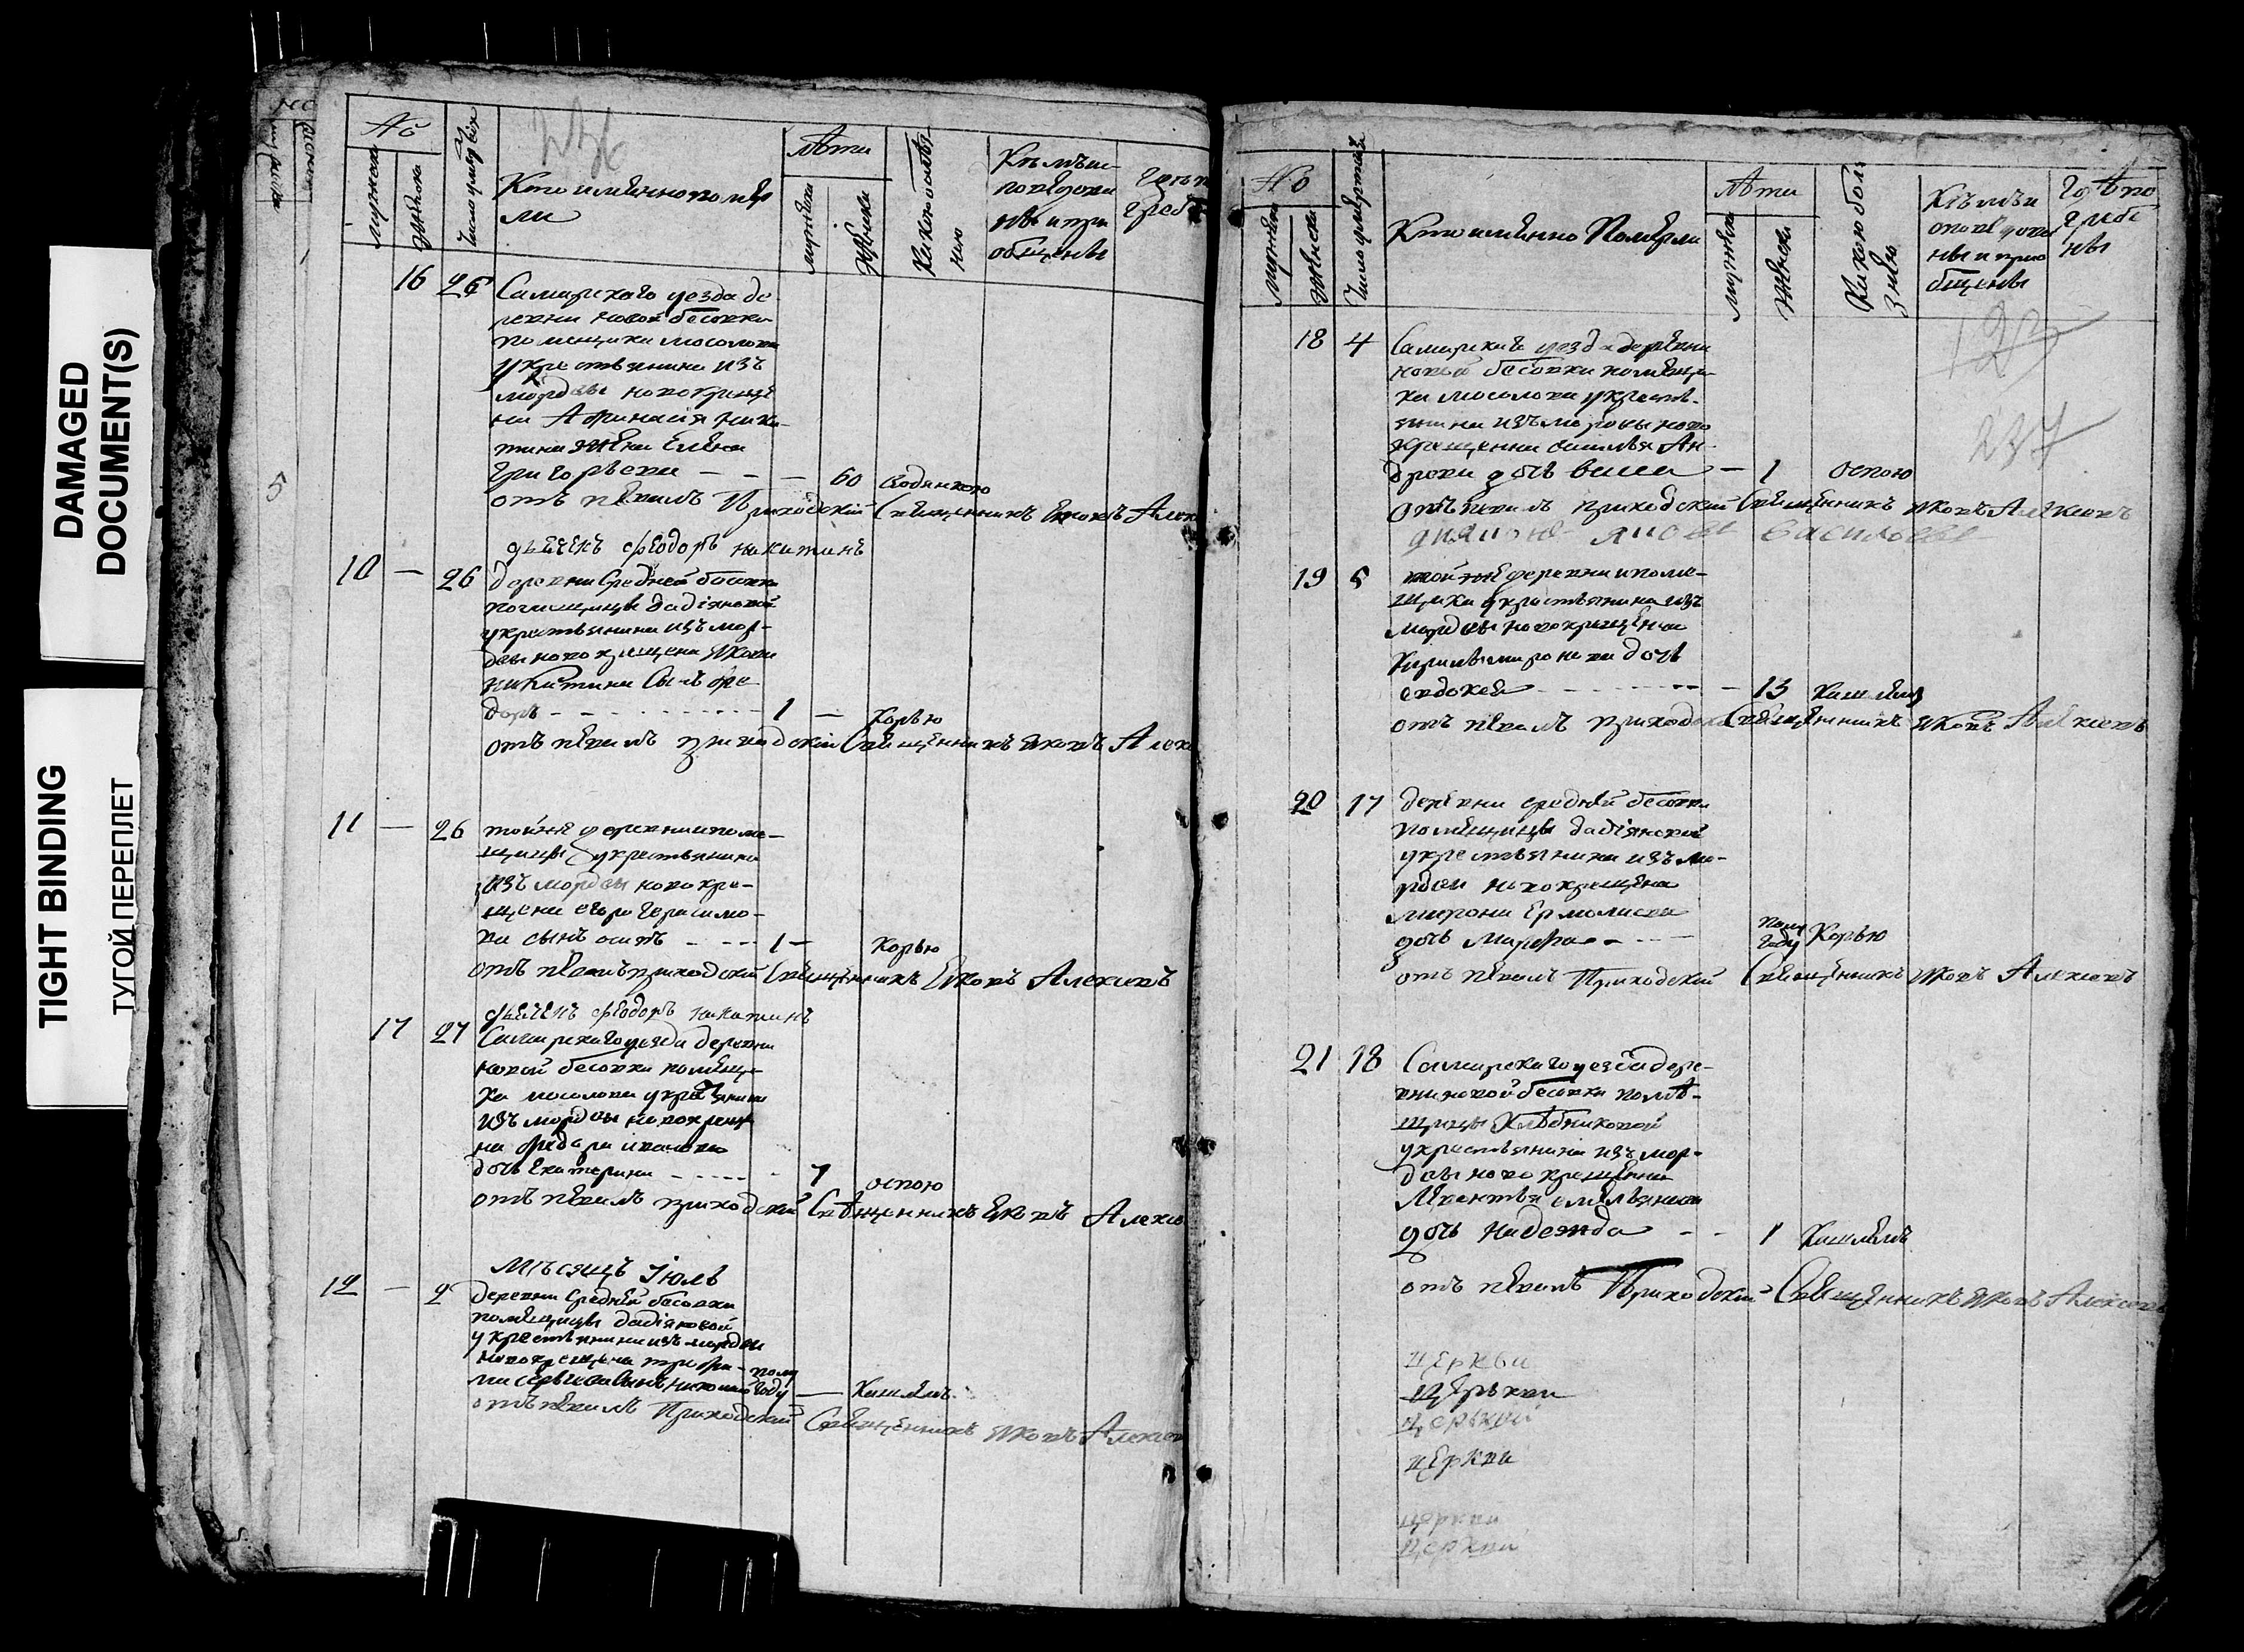 DAMAGED
DOCUMENT(S)
TIGHT BINDING
ТУГОЙ ПЕРЕПЛЕТ
5
236
№
мужска
женска
Число умертвія
Кто имѣнно помер
ли
лѣти
мужска
женска
Какою болѣз
нію
Кѣмъ ис
поведова
ны и при
общены
Гдѣ п
гребе
16 25 Самарскаго уезда де
ревни новой бесовки
помещика мосолова
у крестьянина изъ
мордвы новокреще
на Афанасія ники
тина жена Елена
Григорьева — — — 60 водянкою
отъ певалъ Приходскій Священникъ Яковъ Алек
дьячекъ феодоръ никитинъ
10 — 26 деревни Средней бесовки
помещицы дадіяновой
у крестьянина изъ мор-
двы новокрещена Якова
никитина Сынъ фе
доръ - - - 1 — Корью
отъ певалъ приходскій Священникъ яковъ Алек
11 — 26 той же деревни и поме-
щицы у крестьянина
изъ мордвы новокре-
щена егора герасимо-
ва сынъ осипъ - - - 1 — Корью
отъ певалъ приходскій Священникъ Яковъ Алексиевъ
дьячекъ феодоръ никитинъ
17 27 Самарскаго уезда деревни
новой бесовки помещи
ка мосолова у кретьянина
изъ мордвы новокреще
на федора иванова
дочь екатерина - - - - - 7 оспою
отъ певалъ приходской Священникъ Яковъ Алексие
Мѣсяцъ Іюль
12 — 2 деревни Средней бесовки
помещицы дадіяновой
у крестьянина изъ мордвы
новокрещена трофи- полу
ма сергиева сынъ николай году — Кашлемъ
отъ певалъ Приходской Священникъ яковъ Алексие
№
мужска
женска
Число умертвія
Кто имѣнно Померли
лѣти
мужска
женска
Какою боле
знью
Кѣмъ и
споведова
ны и прио
бщены
Гдѣ по
гребе
ны
123
237
18 4 Самарскаго уезда деревни
новой бесовки помещи
ка мосолова у кресть-
янина изъ мордвы ново
крещенна василья Ан-
дреева дочь васса — 1 оспою
Отъ певалъ приходской Священникъ яковъ Алексиевъ
19 5 той же деревни и поме-
щика у крестьянина изъ
мордвы новокрещена
Кирилы миронова дочь
евдокея - - - 13 Кашлемъ
отъ певалъ приходской Священникъ яковъ Алексиевъ
20 17 деревни средней бесовки
помещицы дадіяновой
у крестьянина изъ мо-
рдвы новокрещена
мирона Ермолаева
дочь Марфа - - - полу году Корью
отъ певалъ Приходской Священникъ яковъ Алексиевъ
21 18 Самарскаго уезда дере-
вни новой бесовки помѣ-
щицы Хлѣбниковой
у крестьянина изъ мор-
двы новокрещенна
Леонтья емельянова
дочь Надежда - - 1 Кашлемъ
отъ певалъ Приходской Священникъ яковъ Алексиевъ
церкви
церькви
церькви
церкви
церкви
церкви